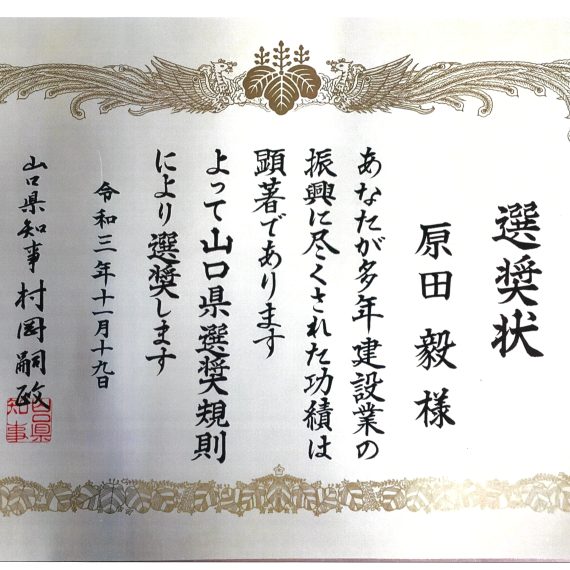 選奨状
原田毅様
あなたが多年建設業の
振興に尽くされた功績は
顕著であります
よって山口県選奨規則
により選奨します
令和三年十一月十九日
山口県知事 村岡嗣政
山口県
知事